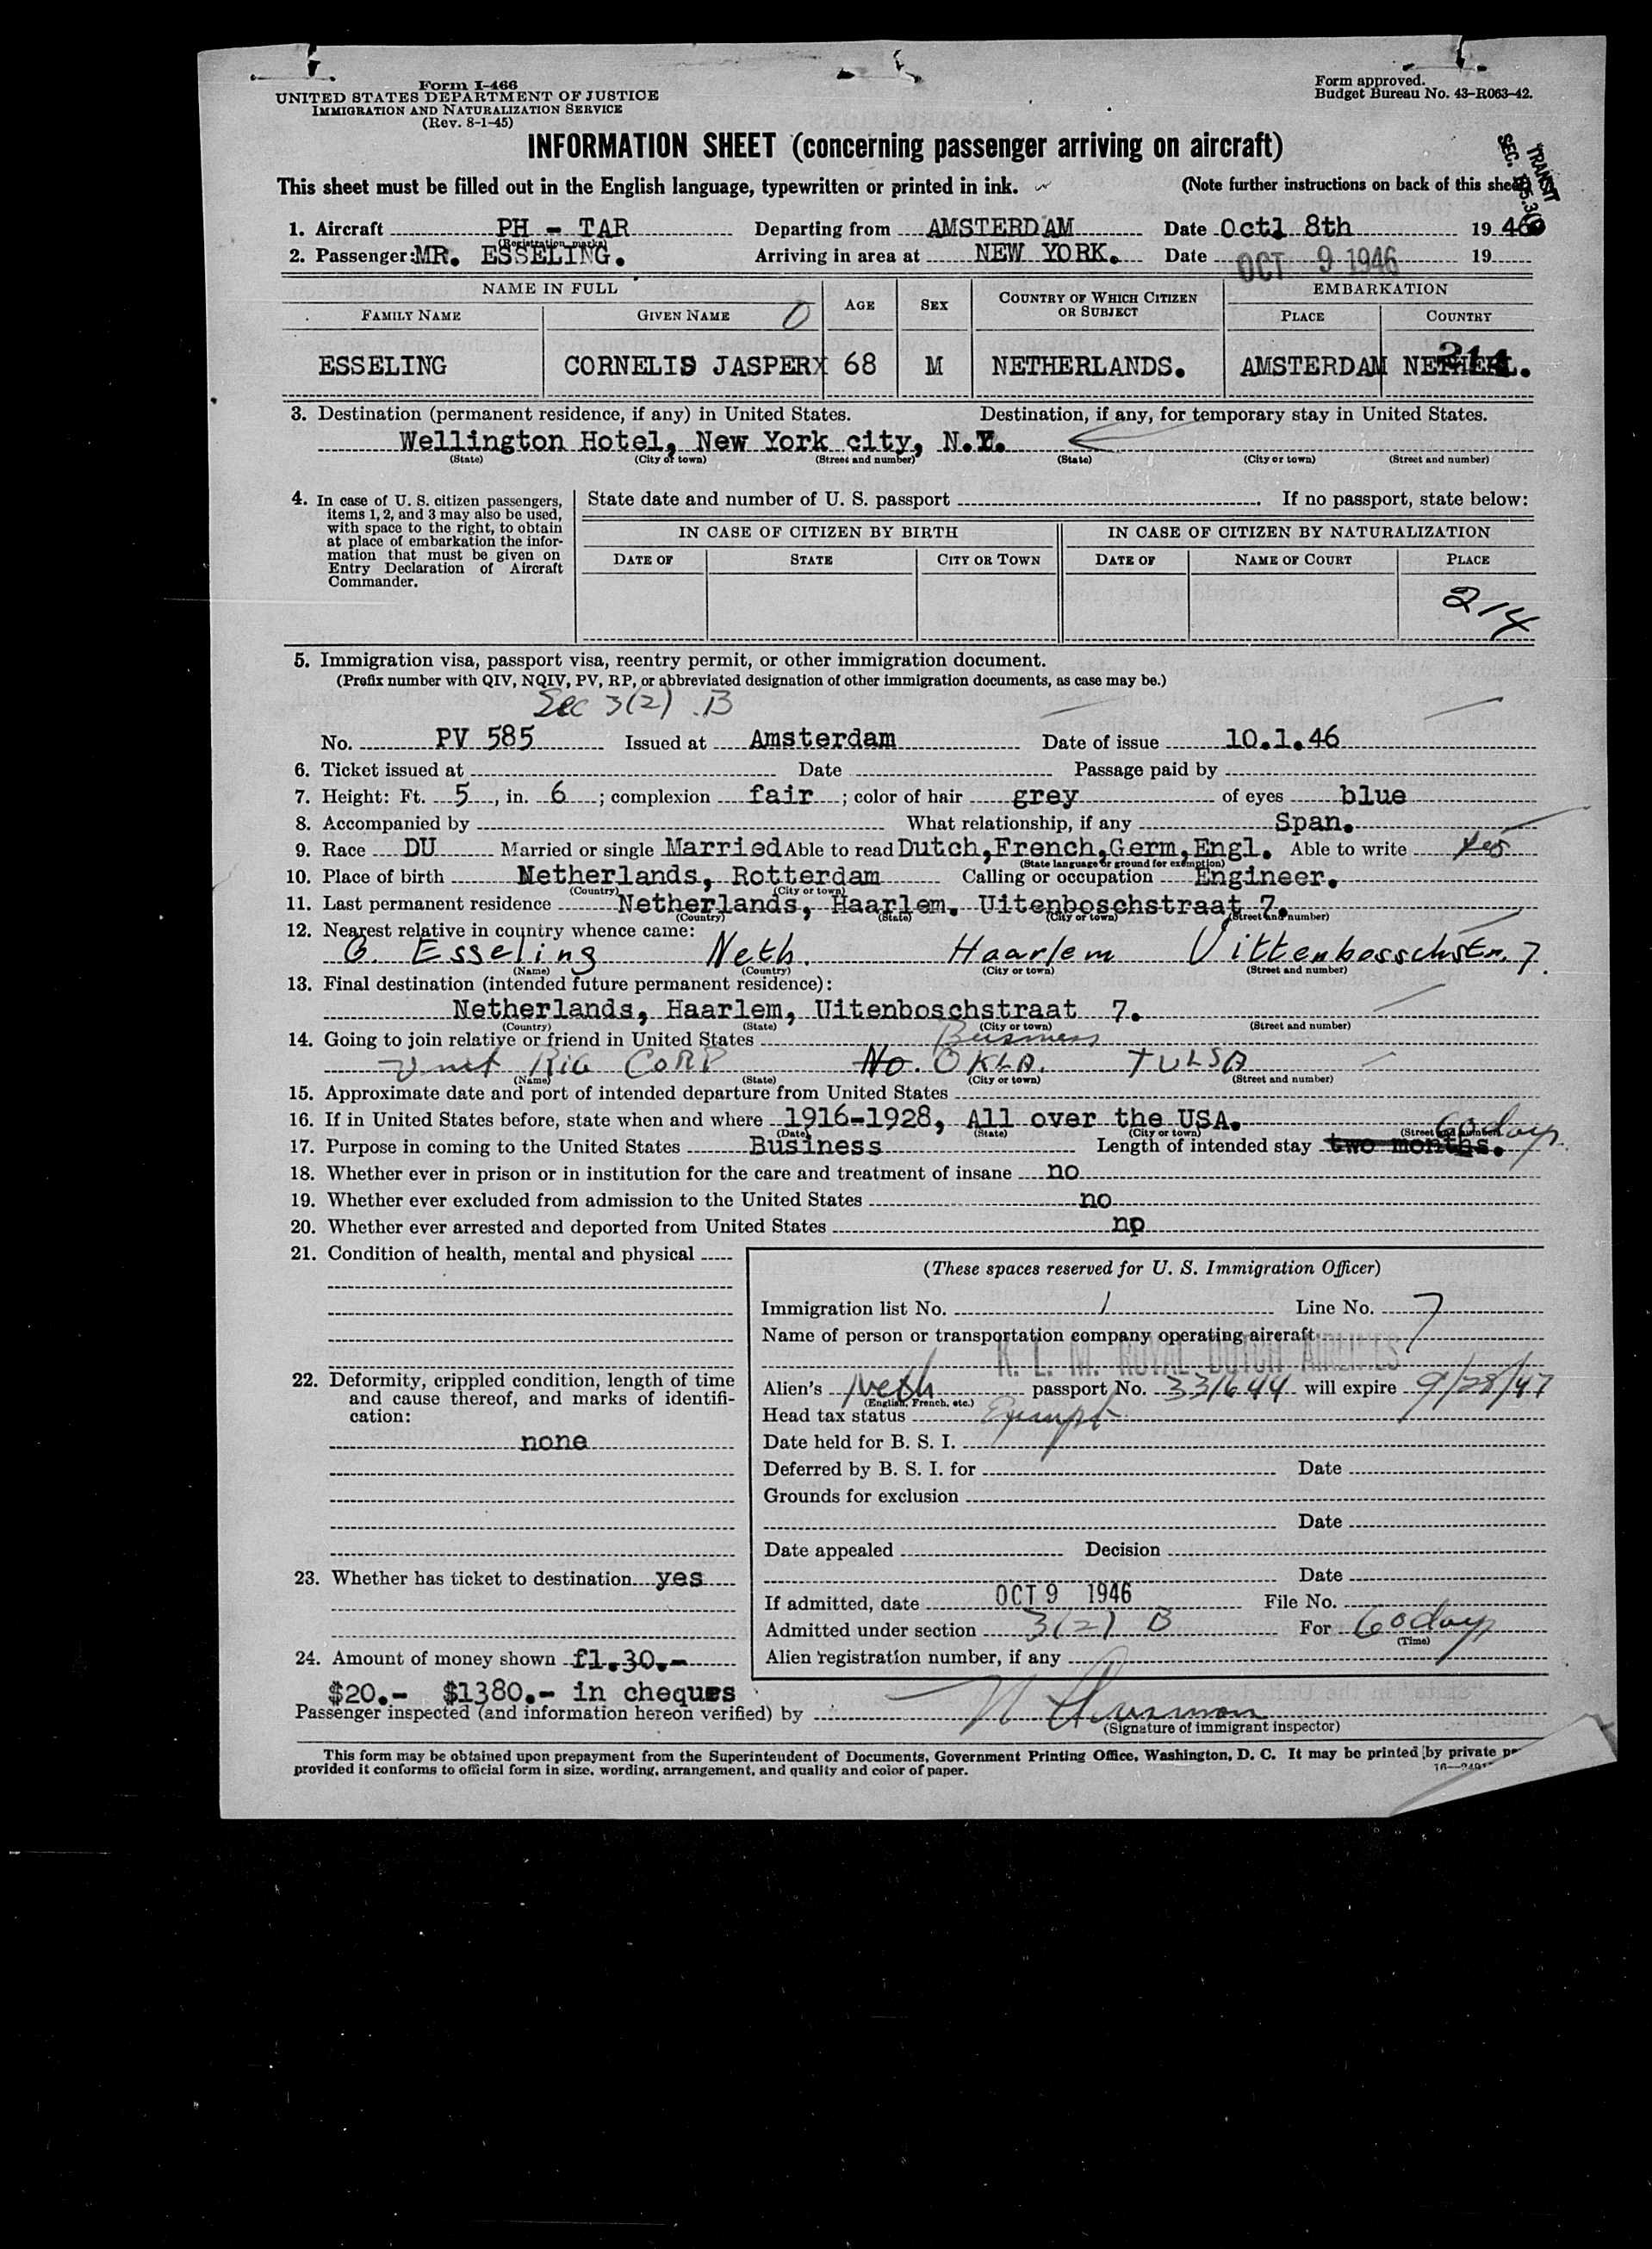 Form I-466
UNITED STATES DEPARTMENT OF JUSTICE
IMMIGRATION AND NATURALIZATION SERVICE
(Rev. 8-1-45)
Form approved.
Budget Bureau No. 43-R063-42.
INFORMATION SHEET (concerning passenger arriving on aircraft)
TRANSIT
SEC.
This sheet must be filled out in the English language, typewritten or printed in ink. (Note further instructions on back of this sheet)
1. Aircraft PH - TAR Departing from AMSTERDAM Date Octl 8th 1946
(Registration marks)
2. Passenger: MR. ESSELING. Arriving in area at NEW YORK. Date OCT 9 1946 19
NAME IN FULL AGE SEX COUNTRY OF WHICH CITIZEN OR SUBJECT EMBARKATION
FAMILY NAME GIVEN NAME PLACE COUNTRY
ESSELING CORNELIS JASPER 68 M NETHERLANDS. AMSTERDAM NETHERL.
214
3. Destination (permanent residence, if any) in United States. Destination, if any, for temporary stay in United States.
Wellington Hotel, New York city, N.Y.
(State) (City or town) (Street and number) (State) (City or town) (Street and number)
4. In case of U. S. citizen passengers, items 1, 2, and 3 may also be used, with space to the right, to obtain at place of embarkation the information that must be given on Entry Declaration of Aircraft Commander.
State date and number of U. S. passport If no passport, state below:
IN CASE OF CITIZEN BY BIRTH IN CASE OF CITIZEN BY NATURALIZATION
DATE OF STATE CITY OR TOWN DATE OF NAME OF COURT PLACE
214
5. Immigration visa, passport visa, reentry permit, or other immigration document.
(Prefix number with QIV, NQIV, PV, RP, or abbreviated designation of other immigration documents, as case may be.)
Sec 3(2) B
No. PV 585 Issued at Amsterdam Date of issue 10.1.46
6. Ticket issued at Date Passage paid by
7. Height: Ft. 5, in. 6; complexion fair; color of hair grey of eyes blue
8. Accompanied by What relationship, if any Span.
9. Race DU Married or single Married Able to read Dutch, French, Germ, Engl. Able to write yes
(State language or ground for exemption)
10. Place of birth Netherlands, Rotterdam Calling or occupation Engineer.
(Country) (City or town)
11. Last permanent residence Netherlands, Haarlem. Uitenboschstraat 7.
(Country) (State) (City or town) (Street and number)
12. Nearest relative in country whence came:
G. Esseling Neth. Haarlem Uittenbosschstr. 7.
(Name) (Country) (City or town) (Street and number)
13. Final destination (intended future permanent residence):
Netherlands, Haarlem, Uitenboschstraat 7.
(Country) (State) (City or town) (Street and number)
14. Going to join relative or friend in United States Business
Unit RIG CORP No. OKLA. TULSA
(Name) (State) (City or town) (Street and number)
15. Approximate date and port of intended departure from United States
16. If in United States before, state when and where 1916-1928, All over the USA.
(Date) (State) (City or town) (Street and number)
60 days
17. Purpose in coming to the United States Business Length of intended stay two months.
18. Whether ever in prison or in institution for the care and treatment of insane no
19. Whether ever excluded from admission to the United States no
20. Whether ever arrested and deported from United States no
21. Condition of health, mental and physical
22. Deformity, crippled condition, length of time and cause thereof, and marks of identification:
none
23. Whether has ticket to destination yes
24. Amount of money shown £1.30.-
$20.- $1380.- in cheques
(These spaces reserved for U. S. Immigration Officer)
Immigration list No. 1 Line No. 7
Name of person or transportation company operating aircraft
K. L. M. ROYAL DUTCH AIRLINES
Alien's Neth passport No. 331644 will expire 9/28/47
(English, French, etc.)
Head tax status Exempt
Date held for B. S. I.
Deferred by B. S. I. for Date
Grounds for exclusion
Date
Date appealed Decision
Date
If admitted, date OCT 9 1946 File No.
Admitted under section 3(2) B For 60 days
(Time)
Alien registration number, if any
Passenger inspected (and information hereon verified) by
(Signature of immigrant inspector)
This form may be obtained upon prepayment from the Superintendent of Documents, Government Printing Office, Washington, D. C. It may be printed by private
provided it conforms to official form in size, wording, arrangement, and quality and color of paper.